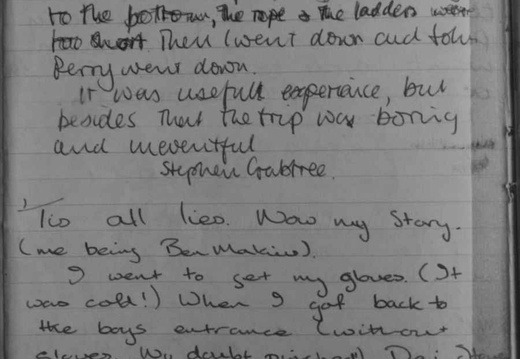 to the bottom, the rope & the ladders were
too short Then I went down and John
Perry went down.
It was usefull experience, but
besides that the trip was boring
and uneventful
Stephen Crabtree.
Tis all lies. Now my story.
(me being Ben Makin).
I went to get my gloves. (It
was cold!) When I got back to
the boys entrance (without
gloves. No doubt pinched!)